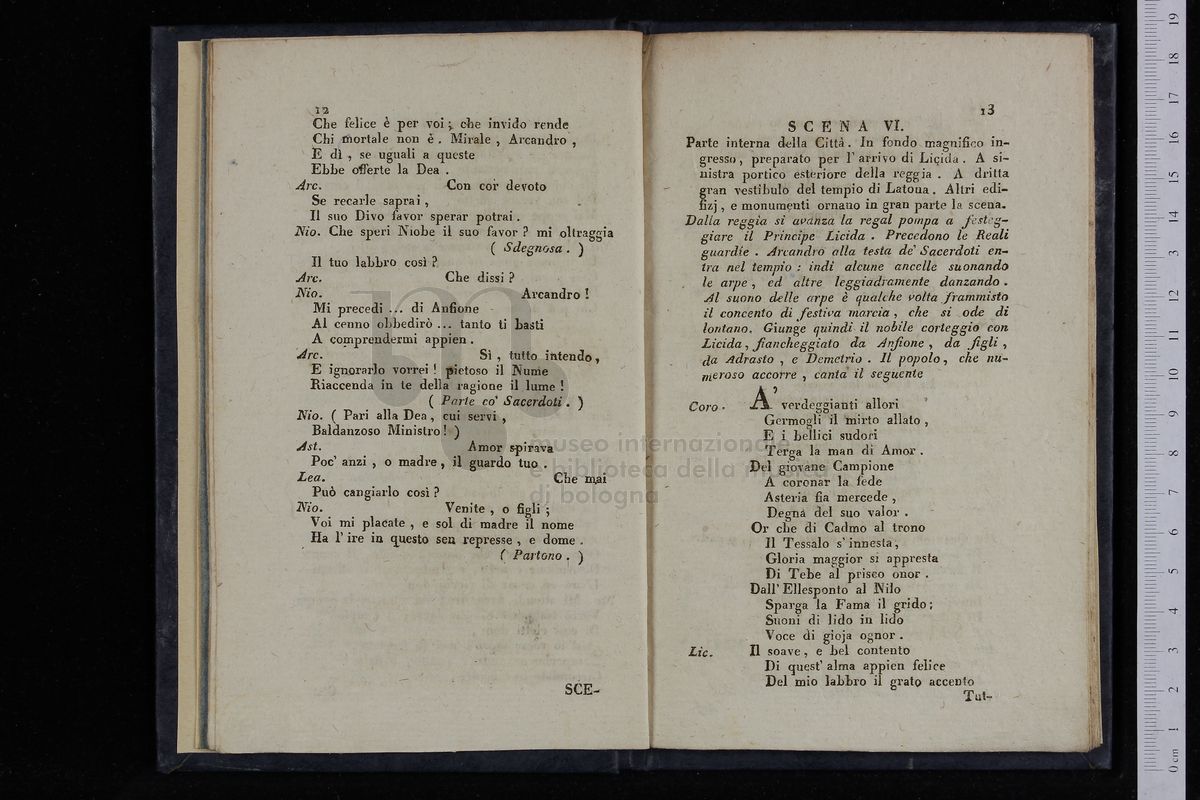 12
Che felice è per voi; che invido rende
Chi mortale non è. Mirale, Arcandro,
E dì, se uguali a queste
Ebbe offerte la Dea.
Arc. Con cor devoto
Se recarle saprai,
Il suo Divo favor sperar potrai.
Nio. Che speri Niobe il suo favor? mi oltraggia
( Sdegnosa. )
Il tuo labbro così?
Arc. Che dissi?
Nio. Arcandro!
Mi precedi ... di Anfione
Al cenno obbedirò ... tanto ti basti
A comprendermi appien.
Arc. Sì, tutto intendo,
E ignorarlo vorrei! pietoso il Nume
Riaccenda in te della ragione il lume!
( Parte co' Sacerdoti. )
Nio. ( Pari alla Dea, cui servi,
Baldanzoso Ministro! )
Ast. Amor spirava
Poc' anzi, o madre, il guardo tuo.
Lea. Che mai
Può cangiarlo così?
Nio. Venite, o figli;
Voi mi placate, e sol di madre il nome
Ha l' ire in questo sen represse, e dome.
( Partono. )
SCE-
13
SCENA VI.
Parte interna della Città. In fondo magnifico in-
gresso, preparato per l' arrivo di Licida. A si-
nistra portico esteriore della reggia. A dritta
gran vestibulo del tempio di Latona. Altri edi-
fizj, e monumenti ornano in gran parte la scena.
Dalla reggia si avanza la regal pompa a festeg-
giare il Principe Licida. Precedono le Reali
guardie. Arcandro alla testa de' Sacerdoti en-
tra nel tempio: indi alcune ancelle suonando
le arpe, ed altre leggiadramente danzando.
Al suono delle arpe è qualche volta frammisto
il concento di festiva marcia, che si ode di
lontano. Giunge quindi il nobile corteggio con
Licida, fiancheggiato da Anfione, da figli,
da Adrasto, e Demetrio. Il popolo, che nu-
meroso accorre, canta il seguente
Coro. A' verdeggianti allori
Germogli il mirto allato,
E i bellici sudori
Terga la man di Amor.
Del giovane Campione
A coronar la fede
Asteria fia mercede,
Degna del suo valor.
Or che di Cadmo al trono
Il Tessalo s' innesta,
Gloria maggior si appresta
Di Tebe al prisco onor.
Dall' Ellesponto al Nilo
Sparga la Fama il grido;
Suoni di lido in lido
Voce di gioja ognor.
Lic. Il soave, e bel contento
Di quest' alma appien felice
Del mio labbro il grato accento
Tut-
museo internazionale
e biblioteca della musica
di bologna
0 cm 1 2 3 4 5 6 7 8 9 10 11 12 13 14 15 16 17 18 19